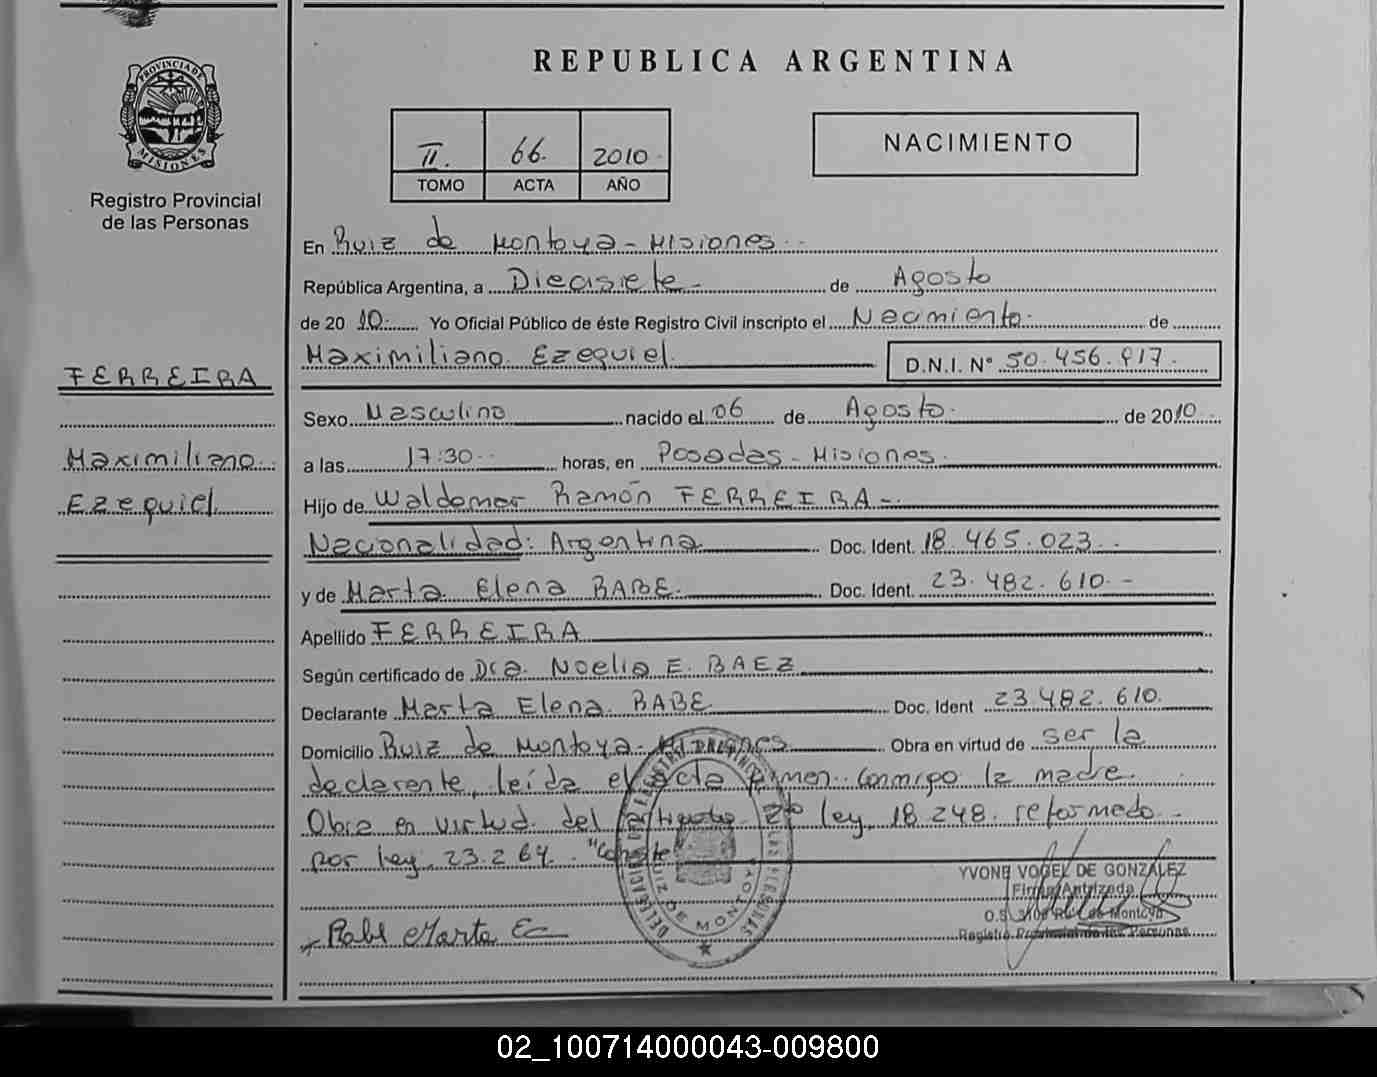 PROVINCIA DE
MISIONES
Registro Provincial
de las Personas
FERREIRA
Maximiliano
Ezequiel
REPUBLICA ARGENTINA
II. 66. 2010
TOMO ACTA AÑO
NACIMIENTO
En Ruiz de Montoya - Misiones
República Argentina, a Diecisiete de Agosto
de 2010 Yo Oficial Público de éste Registro Civil inscripto el Nacimiento de
Maximiliano Ezequiel D.N.I. N° 50.456.917
Sexo Masculino nacido el 06 de Agosto de 2010
a las 17:30 horas, en Posadas - Misiones
Hijo de Waldemar Ramón FERREIRA
Nacionalidad: Argentina Doc. Ident. 18.465.023
y de Marta Elena RABE Doc. Ident. 23.482.610
Apellido FERREIRA
Según certificado de Dra. Noelia E. BAEZ
Declarante Marta Elena RABE Doc. Ident 23.482.610
Domicilio Ruiz de Montoya - Misiones Obra en virtud de ser la
declarante, leída el acta firman conmigo la madre.
Obra en virtud del artículo 2° ley 18.248. reformado
por ley 23.264. "Conste"
DELEGACION DEL REGISTRO PROVINCIAL DE LAS PERSONAS
RUIZ DE MONTOYA
YVONE VOGEL DE GONZALEZ
Firma Autrizada
O.S. 3108 Ruiz de Montoya
Registro Provincial de las Personas
Rabe Marta E
02_100714000043-009800